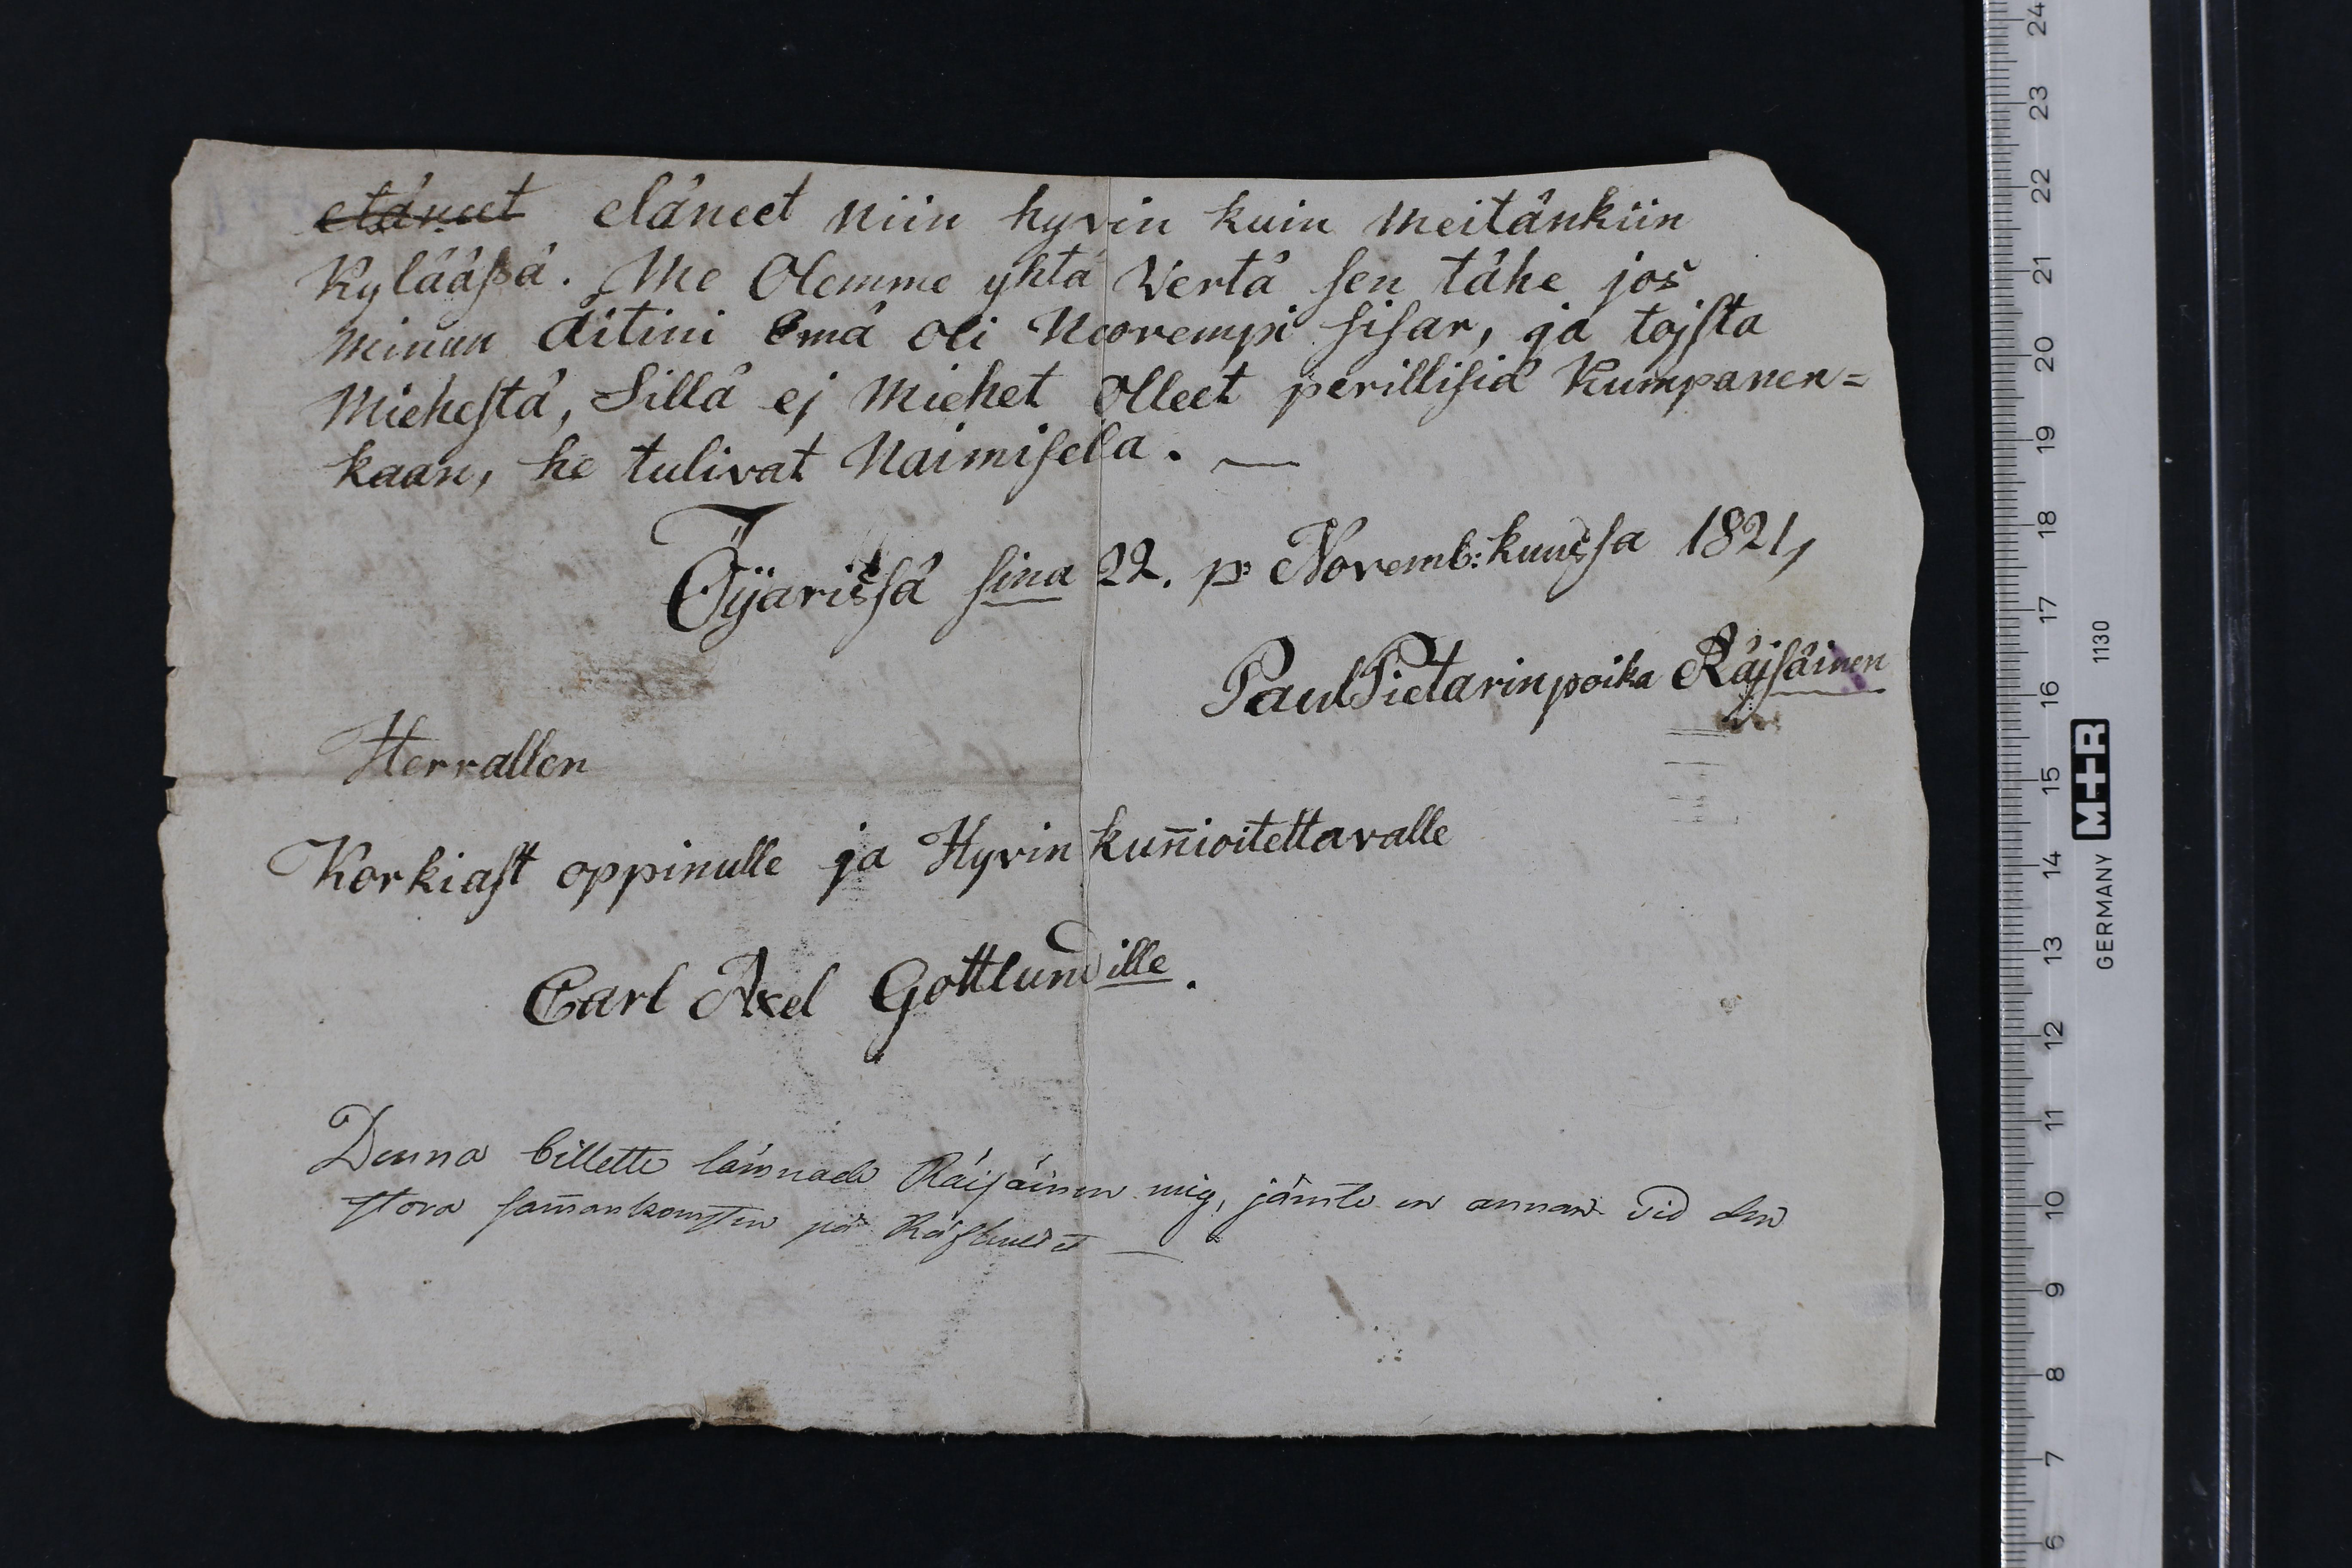 eläneet eläneet niin hyvin kuin meitänkiin
Kylääßä. Me Olemme yhtä Vertä sen tähe jos
minun äitini Emä oli Nuorempi sisar, ja tojsta
Miehestä, Sillä ej Miehet Olleet perillisiä Kumpanen=
kaan, he tulivat Naimisella. —
Öijärissä sina 22. p: Novemb:kuussa 1821,
Paul Pietarinpoika Räjsäinen
Herrallen
Korkiast oppinulle ja Hyvin kun̄ioitettavalle
Carl Axel Gottlundille.
Denna billette lämnade Räisäinen mig, jämte en annan vid den
stora sam̄ankomsten på —
24
23
22
21
20
19
18
17
16
15
14
13
12
11
10
9
8
7
6
GERMANY M+R 1130